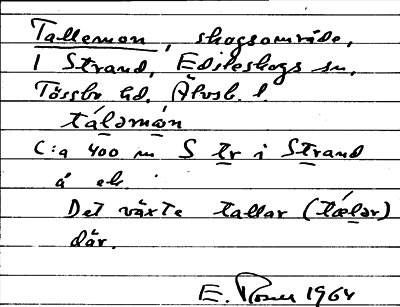 Tallemon, skogsområde,
I Strand, Edsleskogs sn,
Tössbo hd. Älvsb. l.
tálamón
C:a 400 m S tr i Strand
å ek.
Det växte tallar (tælar)
där.
E. 1964